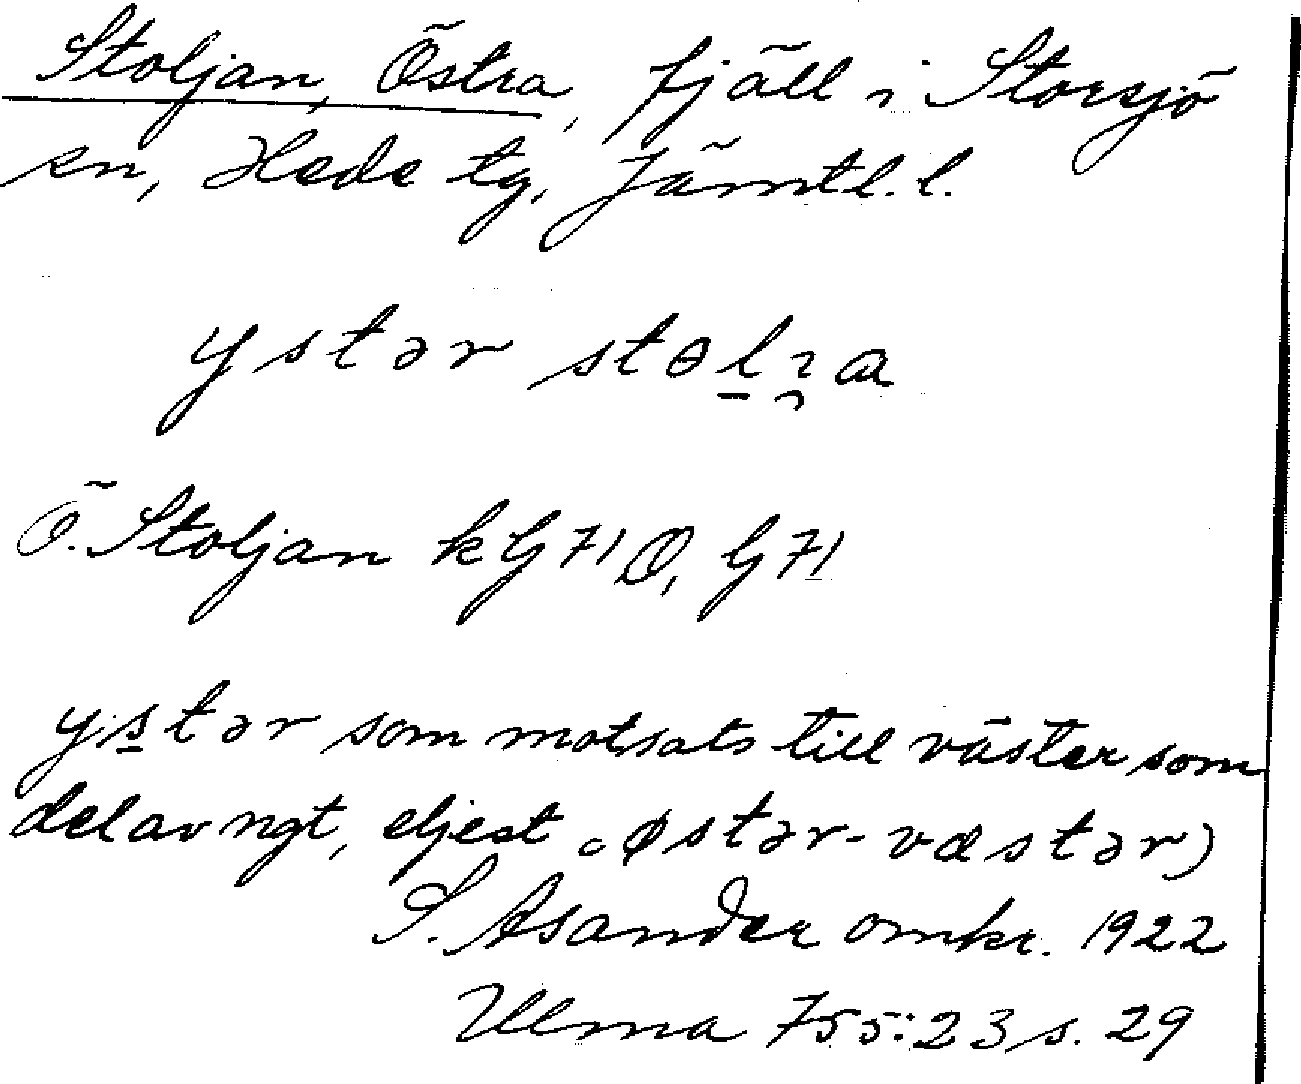 Stoljan, Östra, fjäll i Storsjö
sn, Hede tg, Jämtl. l.
ystər stɵl̠ɿ̯a
Ö. Stoljan k G 71 Ö, G 71
ys̠tər som motsats till väster som
del av ngt, eljest østər-væstər)
S. Asander omkr. 1922
Ulma 755:23 s. 29